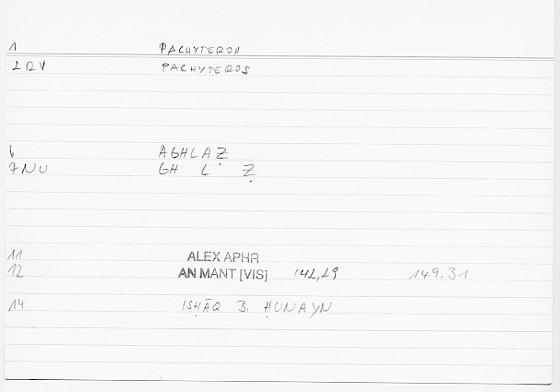 1 PACHYTERON
2 DRV PACHYTEROS
6 AGHLAẒ
7 NU GH L Ẓ
11 ALEX APHR
12 AN MANT [VIS] 142,29 149.31
14 ISḤĀQ B. ḤUNAYN